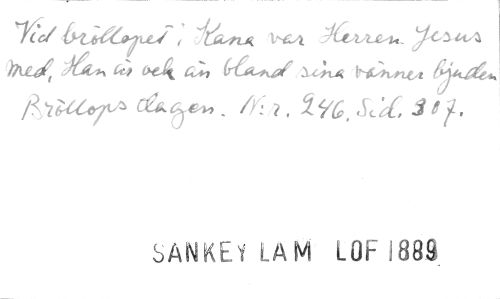 Vid bröllopet i Kana var Herren Jesus
med, Han är ock än bland sina vänner bjuden
Bröllops dagen. N:r. 246. Sid. 307.
SANKEY LAM LOF 1889